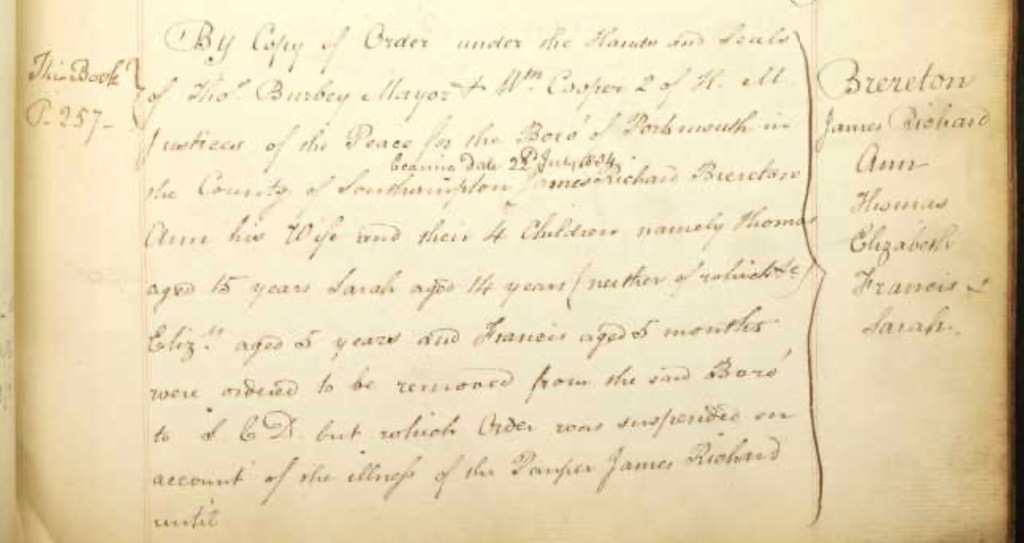 This Book
P. 257-
By Copy of Order under the Hands and Seals
of Thos. Burbey Mayor & Wm. Cooper 2 of H. M.
Justices of the Peace for the Boro' of Portsmouth in
bearing date 22d July 1834
the County of Southampton James Richard Brereton
Ann his Wife and their 4 Children namely Thomas
aged 15 years Sarah aged 14 years (neither of which &c)
Elizth. aged 5 years and Francis aged 5 months
were ordered to be removed from the said Boro'
to S. C D. but which Order was suspended on
account of the illness of the Pauper James Richard
until
Brereton
James Richard
Ann
Thomas
Elizabeth
Francis &
Sarah.